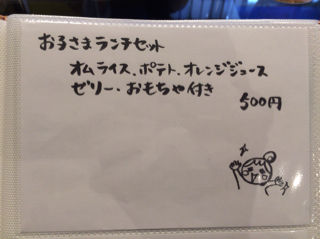 お子さまランチセット
オムライス、ポテト、オレンジジュース
ゼリー・おもちゃ付き
500円